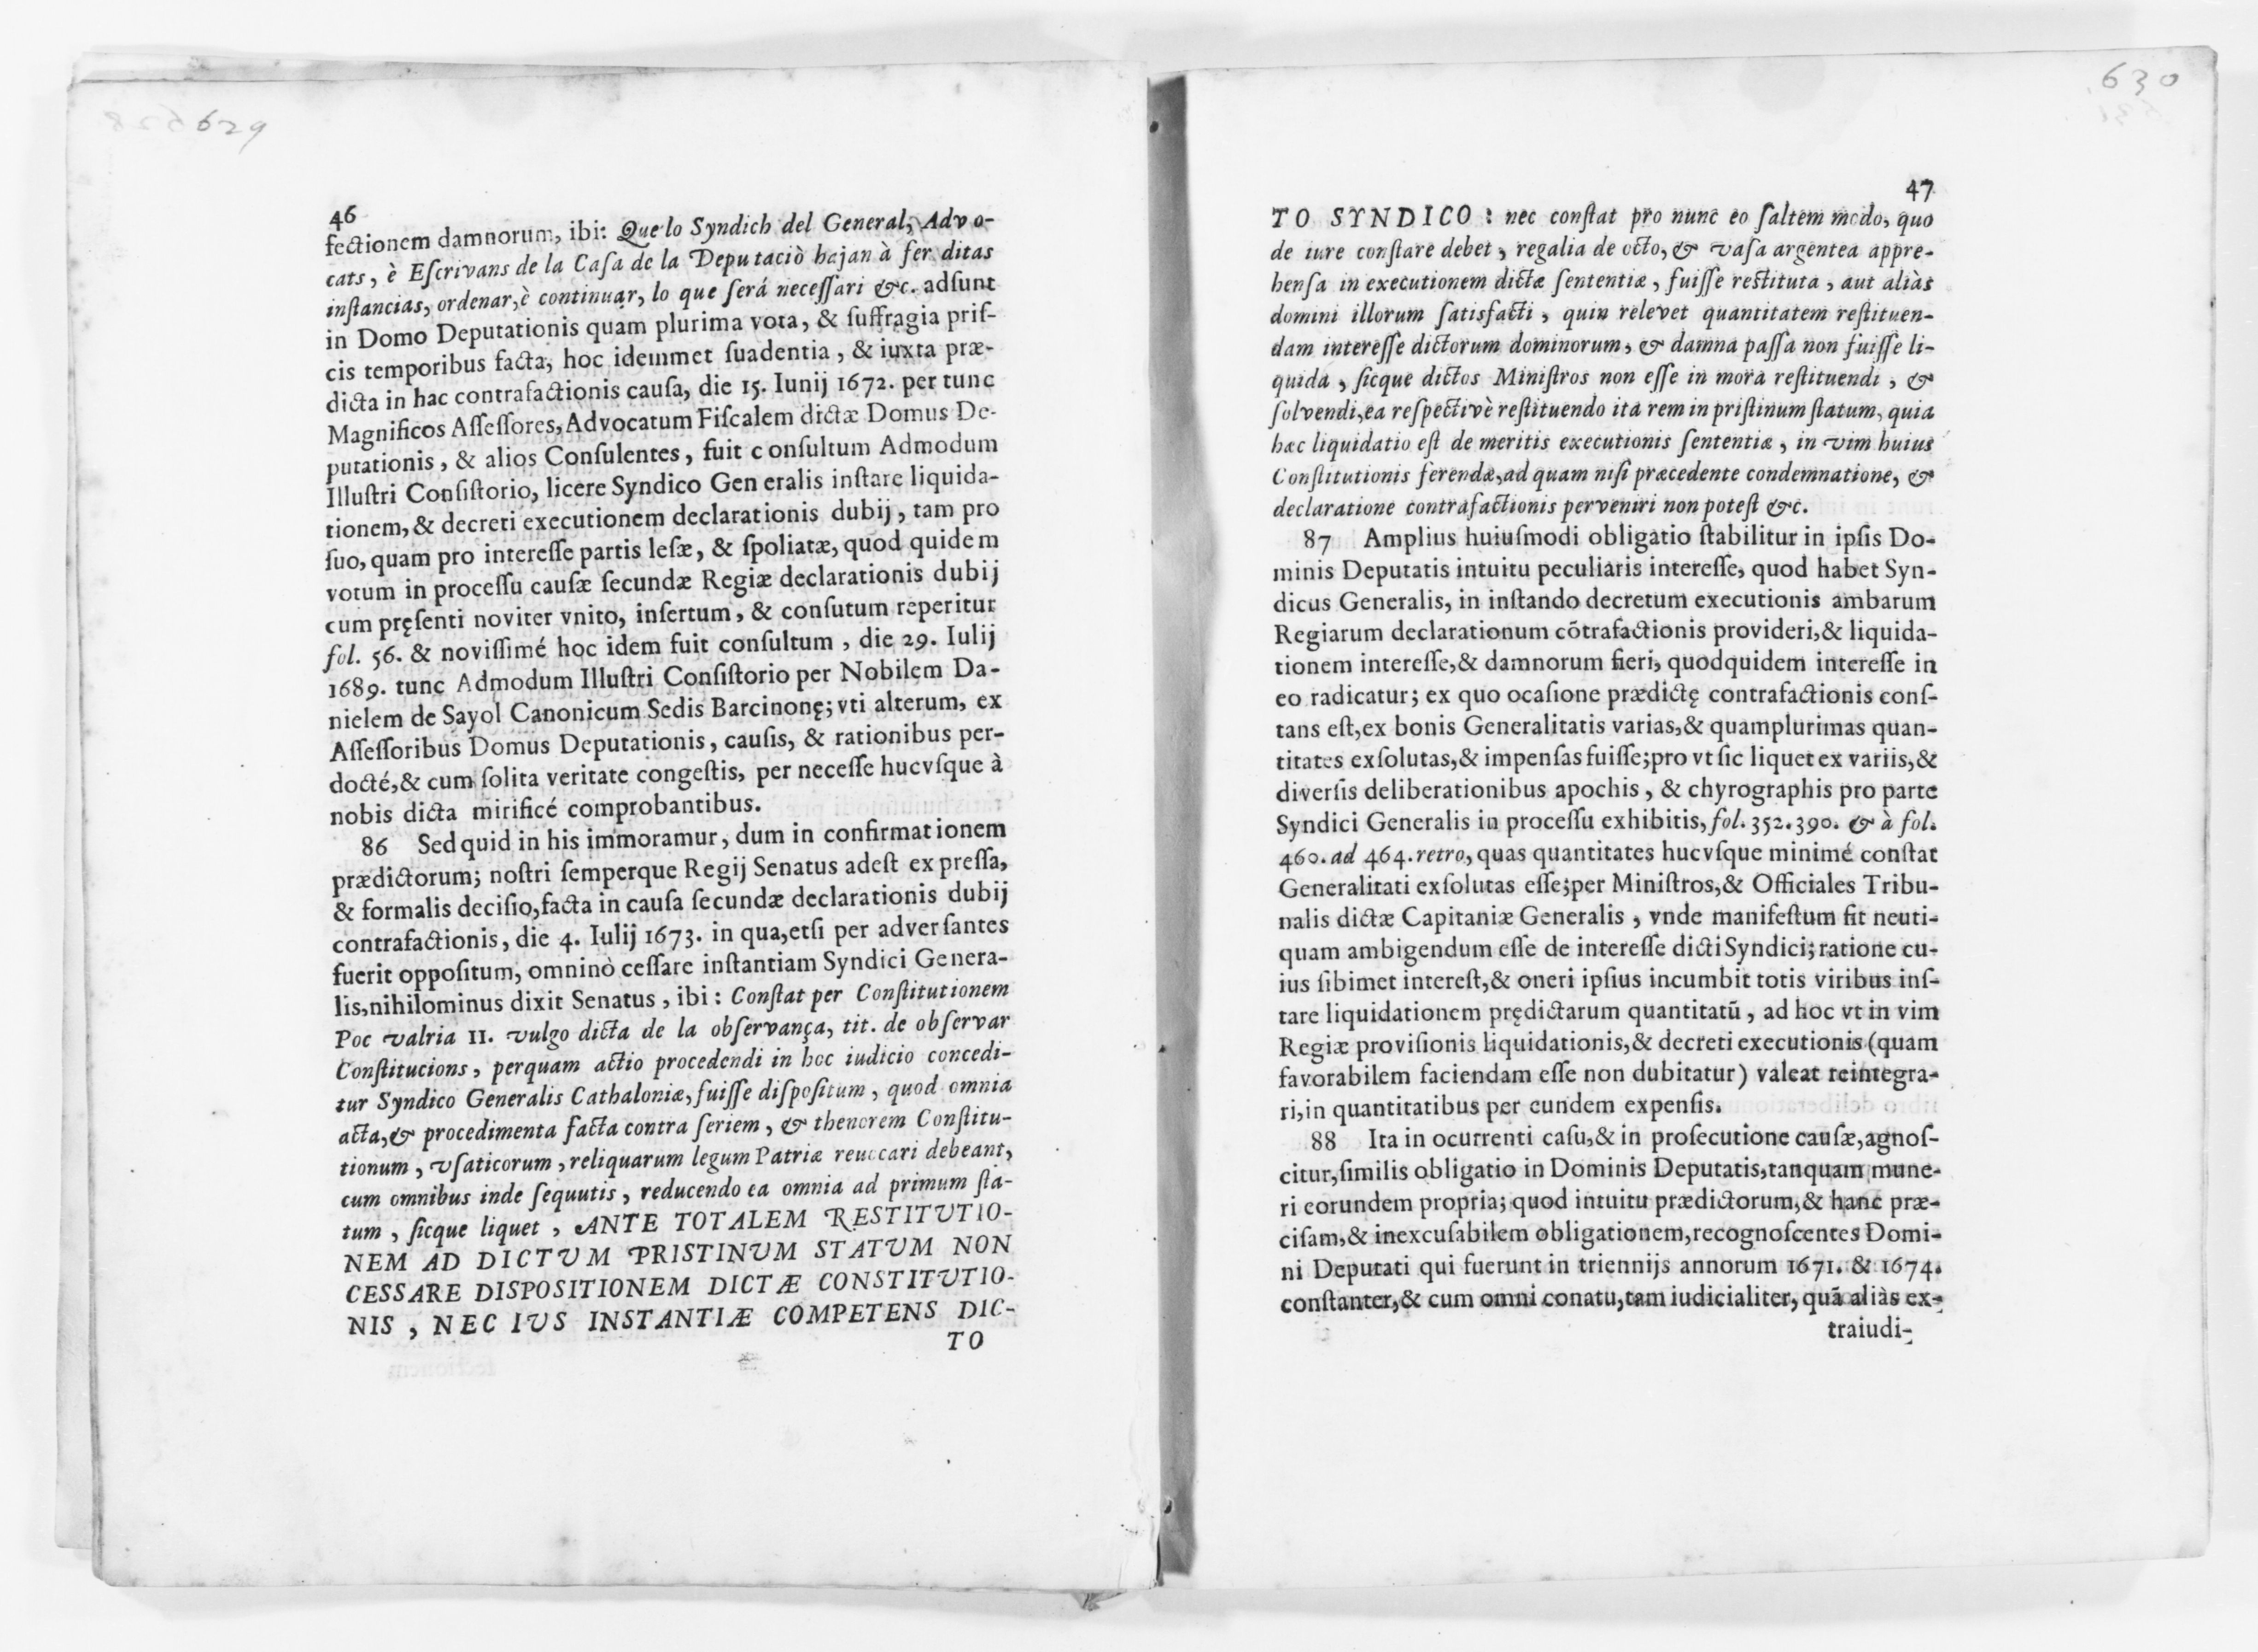 629
46
fectionem damnorum, ibi: Que lo Syndich del General, Advo-
cats, è Eſcrivans de la Caſa de la Deputaciò hajan à fer ditas
inſtancias, ordenar, è continuar, lo que ſerá neceſſari &c. adſunt
in Domo Deputationis quam plurima vota, & ſuffragia priſ-
cis temporibus facta, hoc idemmet ſuadentia, & iuxta præ-
dicta in hac contrafactionis cauſa, die 15. Iunij 1672. per tunc
Magnificos Aſſeſſores, Advocatum Fiſcalem dictæ Domus De-
putationis, & alios Conſulentes, fuit conſultum Admodum
Illuſtri Conſiſtorio, licere Syndico Generalis inſtare liquida-
tionem, & decreti executionem declarationis dubij, tam pro
ſuo, quam pro intereſſe partis leſæ, & ſpoliatæ, quod quidem
votum in proceſſu cauſæ ſecundæ Regiæ declarationis dubij
cum pręſenti noviter vnito, inſertum, & conſutum reperitur
fol. 56. & noviſſimé hoc idem fuit conſultum, die 29. Iulij
1689. tunc Admodum Illuſtri Conſiſtorio per Nobilem Da-
nielem de Sayol Canonicum Sedis Barcinonę; vti alterum, ex
Aſſeſſoribus Domus Deputationis, cauſis, & rationibus per-
docté, & cum ſolita veritate congeſtis, per neceſſe hucvſque à
nobis dicta mirificé comprobantibus.
86 Sed quid in his immoramur, dum in confirmationem
prædictorum; noſtri ſemperque Regij Senatus adeſt expreſſa,
& formalis deciſio, facta in cauſa ſecundæ declarationis dubij
contrafactionis, die 4. Iulij 1673. in qua, etſi per adverſantes
fuerit oppoſitum, omninò ceſſare inſtantiam Syndici Genera-
lis, nihilominus dixit Senatus, ibi: Conſtat per Conſtitutionem
Poc valria 11. vulgo dicta de la obſervança, tit. de obſervar
Conſtitucions, perquam actio procedendi in hoc iudicio concedi-
tur Syndico Generalis Cathaloniæ, fuiſſe diſpoſitum, quod omnia
acta, & procedimenta facta contra ſeriem, & thenorem Conſtitu-
tionum, vſaticorum, reliquarum legum Patriæ reuocari debeant,
cum omnibus inde ſequutis, reducendo ea omnia ad primum ſta-
tum, ſicque liquet, ANTE TOTALEM RESTITVTIO-
NEM AD DICTUM PRISTINVM STATVM NON
CESSARE DISPOSITIONEM DICTÆ CONSTITVTIO-
NIS, NEC IVS INSTANTIÆ COMPETENS DIC-
TO
630
47
TO SYNDICO: nec conſtat pro nunc eo ſaltem modo, quo
de iure conſtare debet, regalia de octo, & vaſa argentea appre-
henſa in executionem dictæ ſententiæ, fuiſſe reſtituta, aut aliàs
domini illorum ſatisfacti, quin relevet quantitatem reſtituen-
dam intereſſe dictorum dominorum, & damna paſſa non fuiſſe li-
quida, ſicque dictos Miniſtros non eſſe in mora reſtituendi, &
ſolvendi, ea reſpectivè reſtituendo ita rem in priſtinum ſtatum, quia
hæc liquidatio eſt de meritis executionis ſententiæ, in vim huius
Conſtitutionis ferendæ, ad quam niſi præcedente condemnatione, &
declaratione contrafactionis perveniri non poteſt &c.
87 Amplius huiuſmodi obligatio ſtabilitur in ipſis Do-
minis Deputatis intuitu peculiaris intereſſe, quod habet Syn-
dicus Generalis, in inſtando decretum executionis ambarum
Regiarum declarationum cõtrafactionis provideri, & liquida-
tionem intereſſe, & damnorum fieri, quodquidem intereſſe in
eo radicatur; ex quo ocaſione prædictę contrafactionis conſ-
tans eſt, ex bonis Generalitatis varias, & quamplurimas quan-
titates exſolutas, & impenſas fuiſſe; pro vt ſic liquet ex variis, &
diverſis deliberationibus apochis, & chyrographis pro parte
Syndici Generalis in proceſſu exhibitis, fol. 352. 390. & à fol.
460. ad 464. retro, quas quantitates hucvſque minimé conſtat
Generalitati exſolutas eſſe; per Miniſtros, & Officiales Tribu-
nalis dictæ Capitaniæ Generalis, vnde manifeſtum fit neuti-
quam ambigendum eſſe de intereſſe dicti Syndici; ratione cu-
ius ſibimet intereſt, & oneri ipſius incumbit totis viribus inſ-
tare liquidationem prędictarum quantitatũ, ad hoc vt in vim
Regiæ proviſionis liquidationis, & decreti executionis (quam
favorabilem faciendam eſſe non dubitatur) valeat reintegra-
ri, in quantitatibus per eundem expenſis.
88 Ita in ocurrenti caſu, & in proſecutione cauſæ, agnoſ-
citur, ſimilis obligatio in Dominis Deputatis, tanquam mune-
ri eorundem propria; quod intuitu prædictorum, & hanc præ-
ciſam, & inexcuſabilem obligationem, recognoſcentes Domi-
ni Deputati qui fuerunt in triennijs annorum 1671. & 1674.
conſtanter, & cum omni conatu, tam iudicialiter, quã aliàs ex-
traiudi-